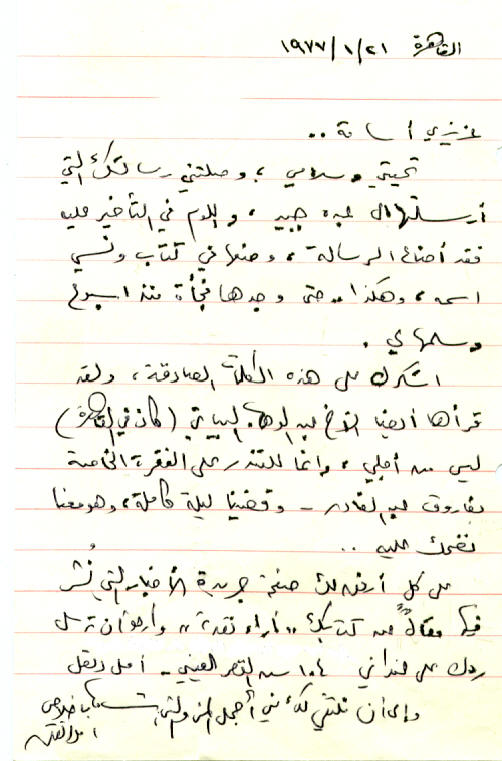 القاهرة ٢١/١/١٩٧٧
عزيزي أسامة ..
تحيتي وسلامي، وصلتني رسالتك التي
أرسلتها إلى عبده جبير، واللوم في التأخير عليه
فقد أضاع الرسالة، وضعها في كتاب ونسي
اسمه، وهكذا .. حتى وجدها فجأة منذ أسبوع
وسلمها لي.
أشكرك على هذه الكلمات الصادقة، ولقد
قرأها أيضا الأخ عبد الوهاب البياتي (كان في القاهرة)
ليس من أجلي، وإنما للتندر على الفقرة الخاصة
بفاروق عبد القادر - وقضينا ليلة كاملة، وهو معنا
نضحك عليه ..
على كل أرفق لك صفحة جريدة الأخبار التي نُشر
فيها مقالٌ عن كتابك "آراء نقدية" وأرجو أن ترسل
ردك على عنواني ١٠٤ ش القصر العيني - أمل دنقل
وإلى أن نلتقي لك مني أجمل المنى
أمل دنقل